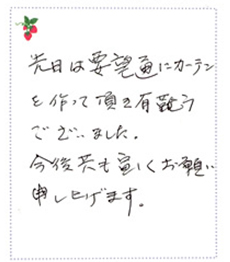 先日は要望通にカーテン
を作って頂き有難う
ございました。
今後共も宜しくお願い
申し上げます。